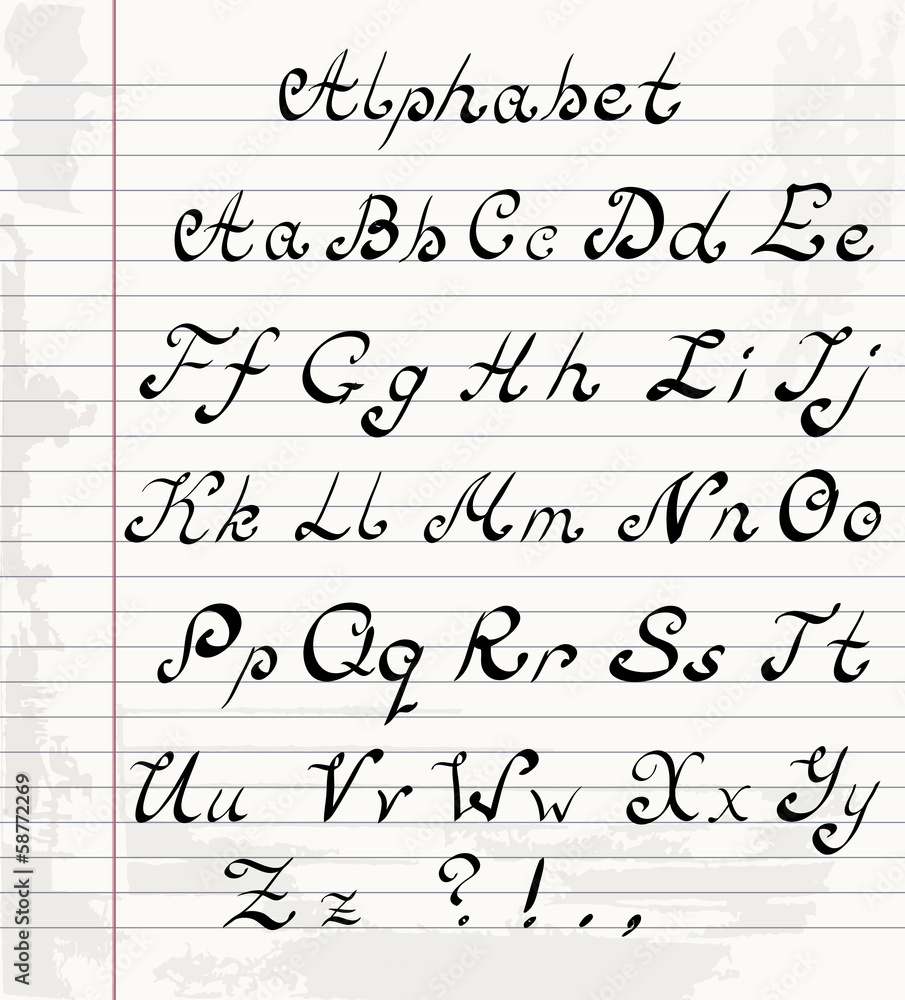 Alphabet
Aa Bb Cc Dd Ee
Ff Gg Hh Ii Jj
Kk Ll Mm Nn Oo
Pp Qq Rr Ss Tt
Uu Vv Ww Xx Yy
Zz ? ! . ,
Adobe Stock | #58772269